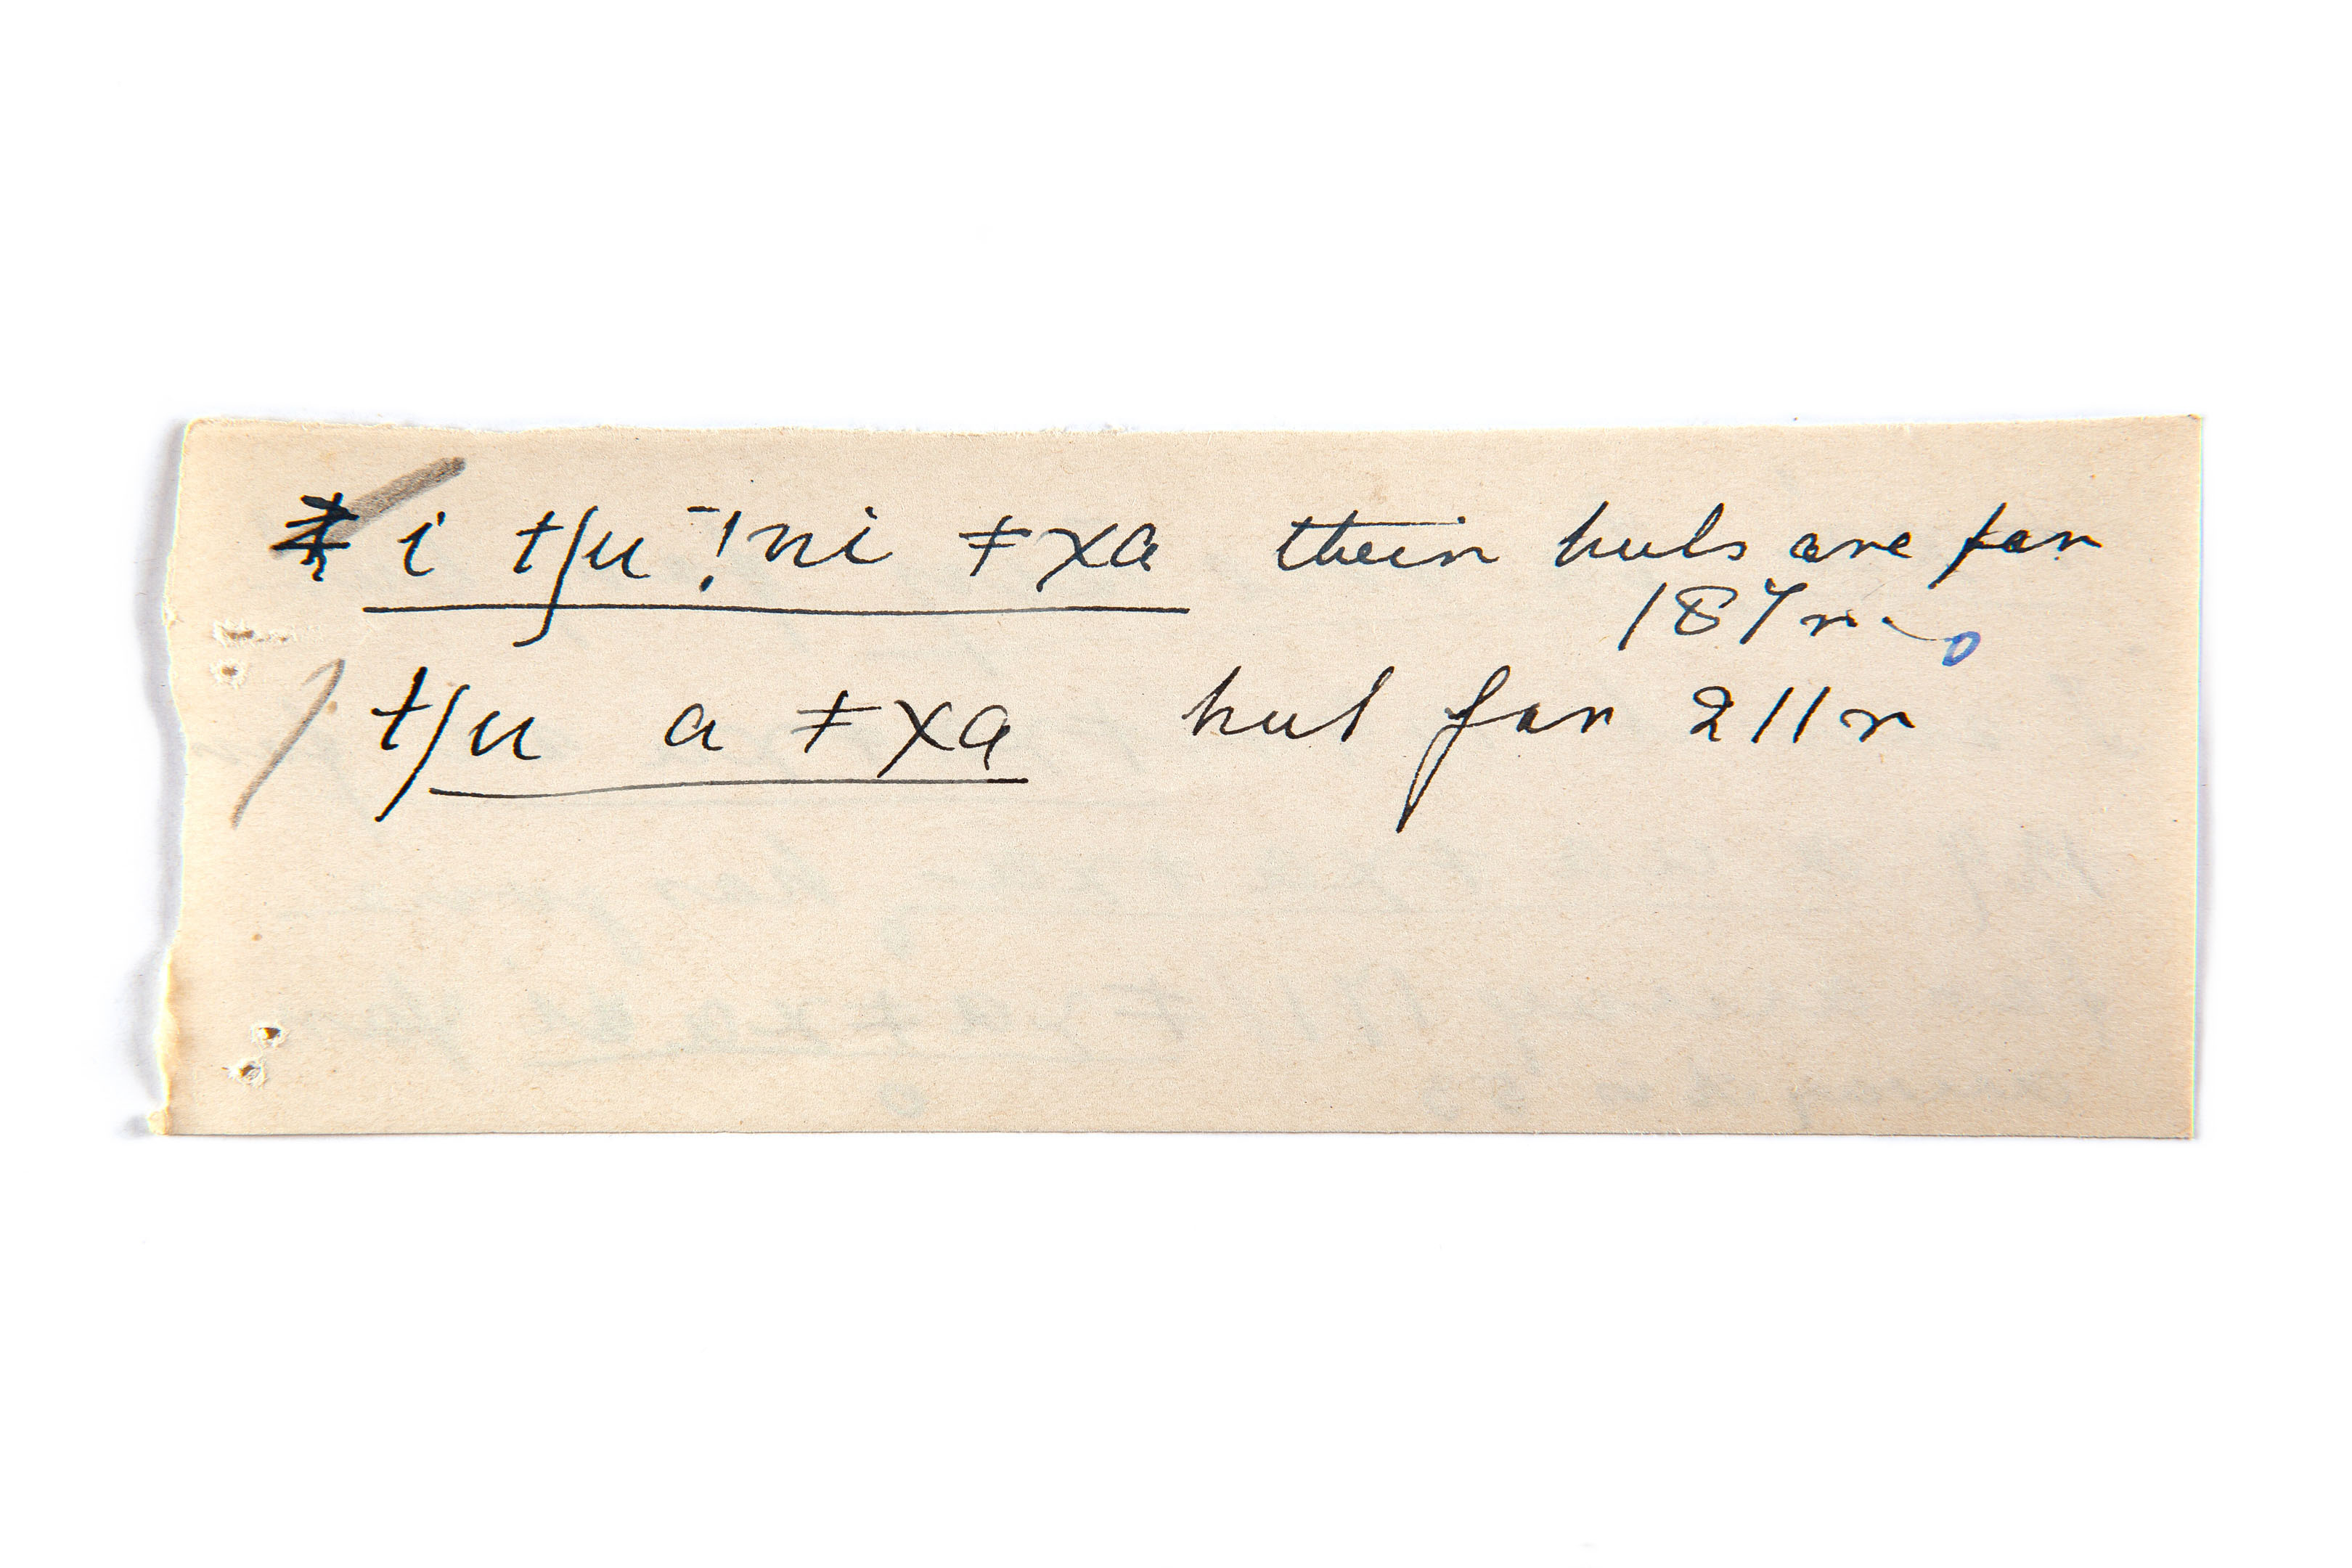 i tʃu ⁻!ni ǂxa their huts are far
187r.
tʃu a ǂxa hut far 211r